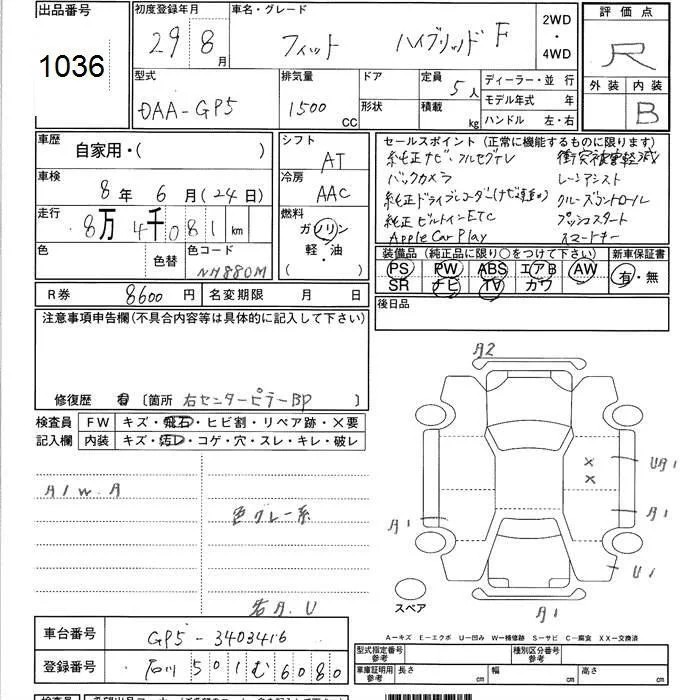 出品番号 初度登録年月 車名・グレード 2WD・4WD 評価点
1036 29 8月 フィット ハイブリッド F R
型式 排気量 ドア 定員 5人 ディーラー・並 行 外装 内装
DAA-GP5 1500 CC 形状 積載 kg モデル年式 年 B
ハンドル 左・右
車歴 シフト セールスポイント (正常に機能するものに限ります)
自家用・( ) AT 純正ナビ、フルセグTV 衝突被害軽減
車検 冷房 バックカメラ レーンアシスト
8年 6月(24日) AAC 純正ドライブレコーダー(ナビ連動) クルーズコントロール
走行 燃料 純正ビルトインETC プッシュスタート
8万 4千081 km ガソリン Apple Car Play スマートキー
軽・油
( )
色 色替 色コード 装備品 (純正品に限り○をつけて下さい) 新車保証書
NH880M PS PW ABS エアB AW 有・無
SR ナビ TV カワ
R券 8600円 名変期限 月 日 後日品
注意事項申告欄(不具合内容等は具体的に記入して下さい)
修復歴 有 〔箇所 右センターピラーBP 〕
検査員 FW キズ・飛石・ヒビ割・リペア跡・×要
記入欄 内装 キズ・汚レ・コゲ・穴・スレ・キレ・破レ
A2
× UA1
×
A1W.A
色グレー系
A1 A1
U1
スペア
右A.U A1
A-キズ E-エクボ U-凹み W-補修跡 S-サビ C-腐食 XX-交換済
車台番号 GP5-3403416 型式指定番号 参考 種別区分番号 参考
登録番号 石川 501む6080 車庫証明用 参考 長さ cm 幅 cm 高さ cm